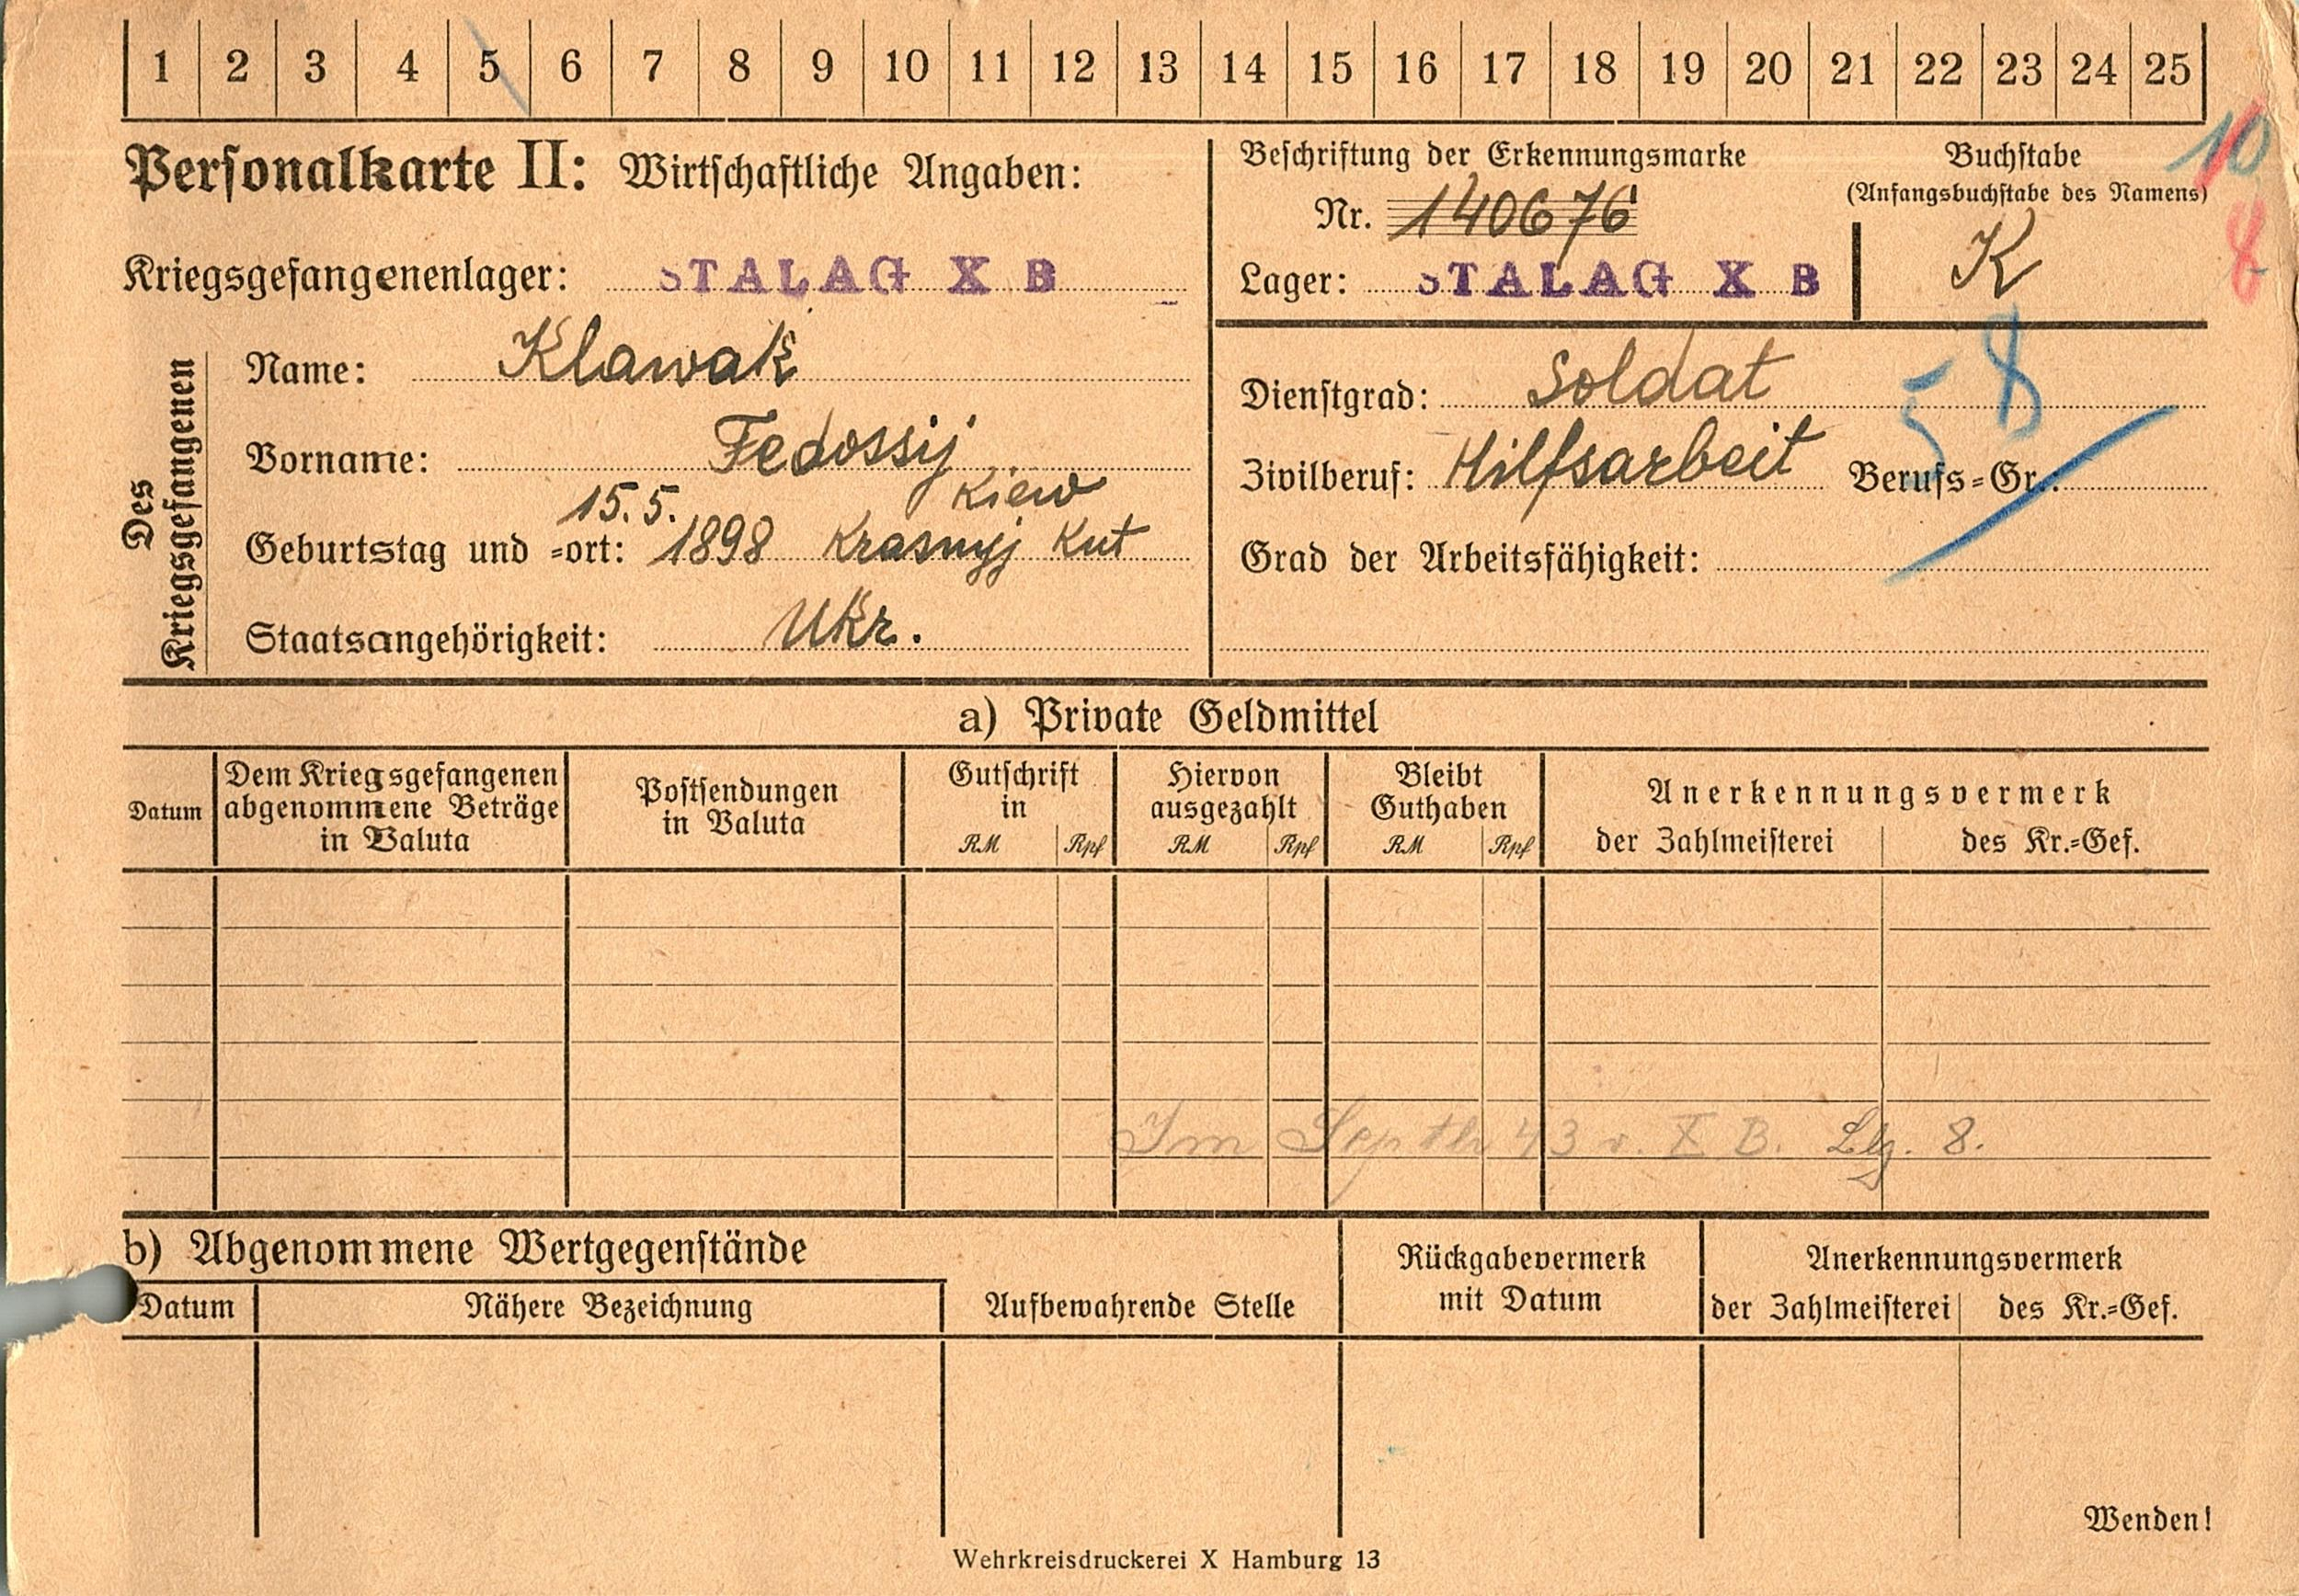 1 2 3 4 5 6 7 8 9 10 11 12 13 14 15 16 17 18 19 20 21 22 23 24 25
Personalkarte II: Wirtschaftliche Angaben:
Kriegsgefangenenlager: STALAG X B
Des Kriegsgefangenen
Name: Klawak
Vorname: Fedossij
15.5. Kiew
Geburtstag und =ort: 1898 Krasnyj Kut
Staatsangehörigkeit: Ukr.
Beschriftung der Erkennungsmarke
Nr. 140676
Lager: STALAG X B
Buchstabe
(Anfangsbuchstabe des Namens)
K
10
8
58
Dienstgrad: Soldat
Zivilberuf: Hilfsarbeit Berufs=Gr.:
Grad der Arbeitsfähigkeit:
a) Private Geldmittel
Datum
Dem Kriegsgefangenen
abgenommene Beträge
in Valuta
Postsendungen
in Valuta
Gutschrift
in
RM Rpf
Hiervon
ausgezahlt
RM Rpf
Bleibt
Guthaben
RM Rpf
Anerkennungsvermerk
der Zahlmeisterei des Kr.=Gef.
Im 43 v. X B. 8.
b) Abgenommene Wertgegenstände
Datum Nähere Bezeichnung Aufbewahrende Stelle
Rückgabevermerk
mit Datum
Anerkennungsvermerk
der Zahlmeisterei des Kr.=Gef.
Wenden!
Wehrkreisdruckerei X Hamburg 13